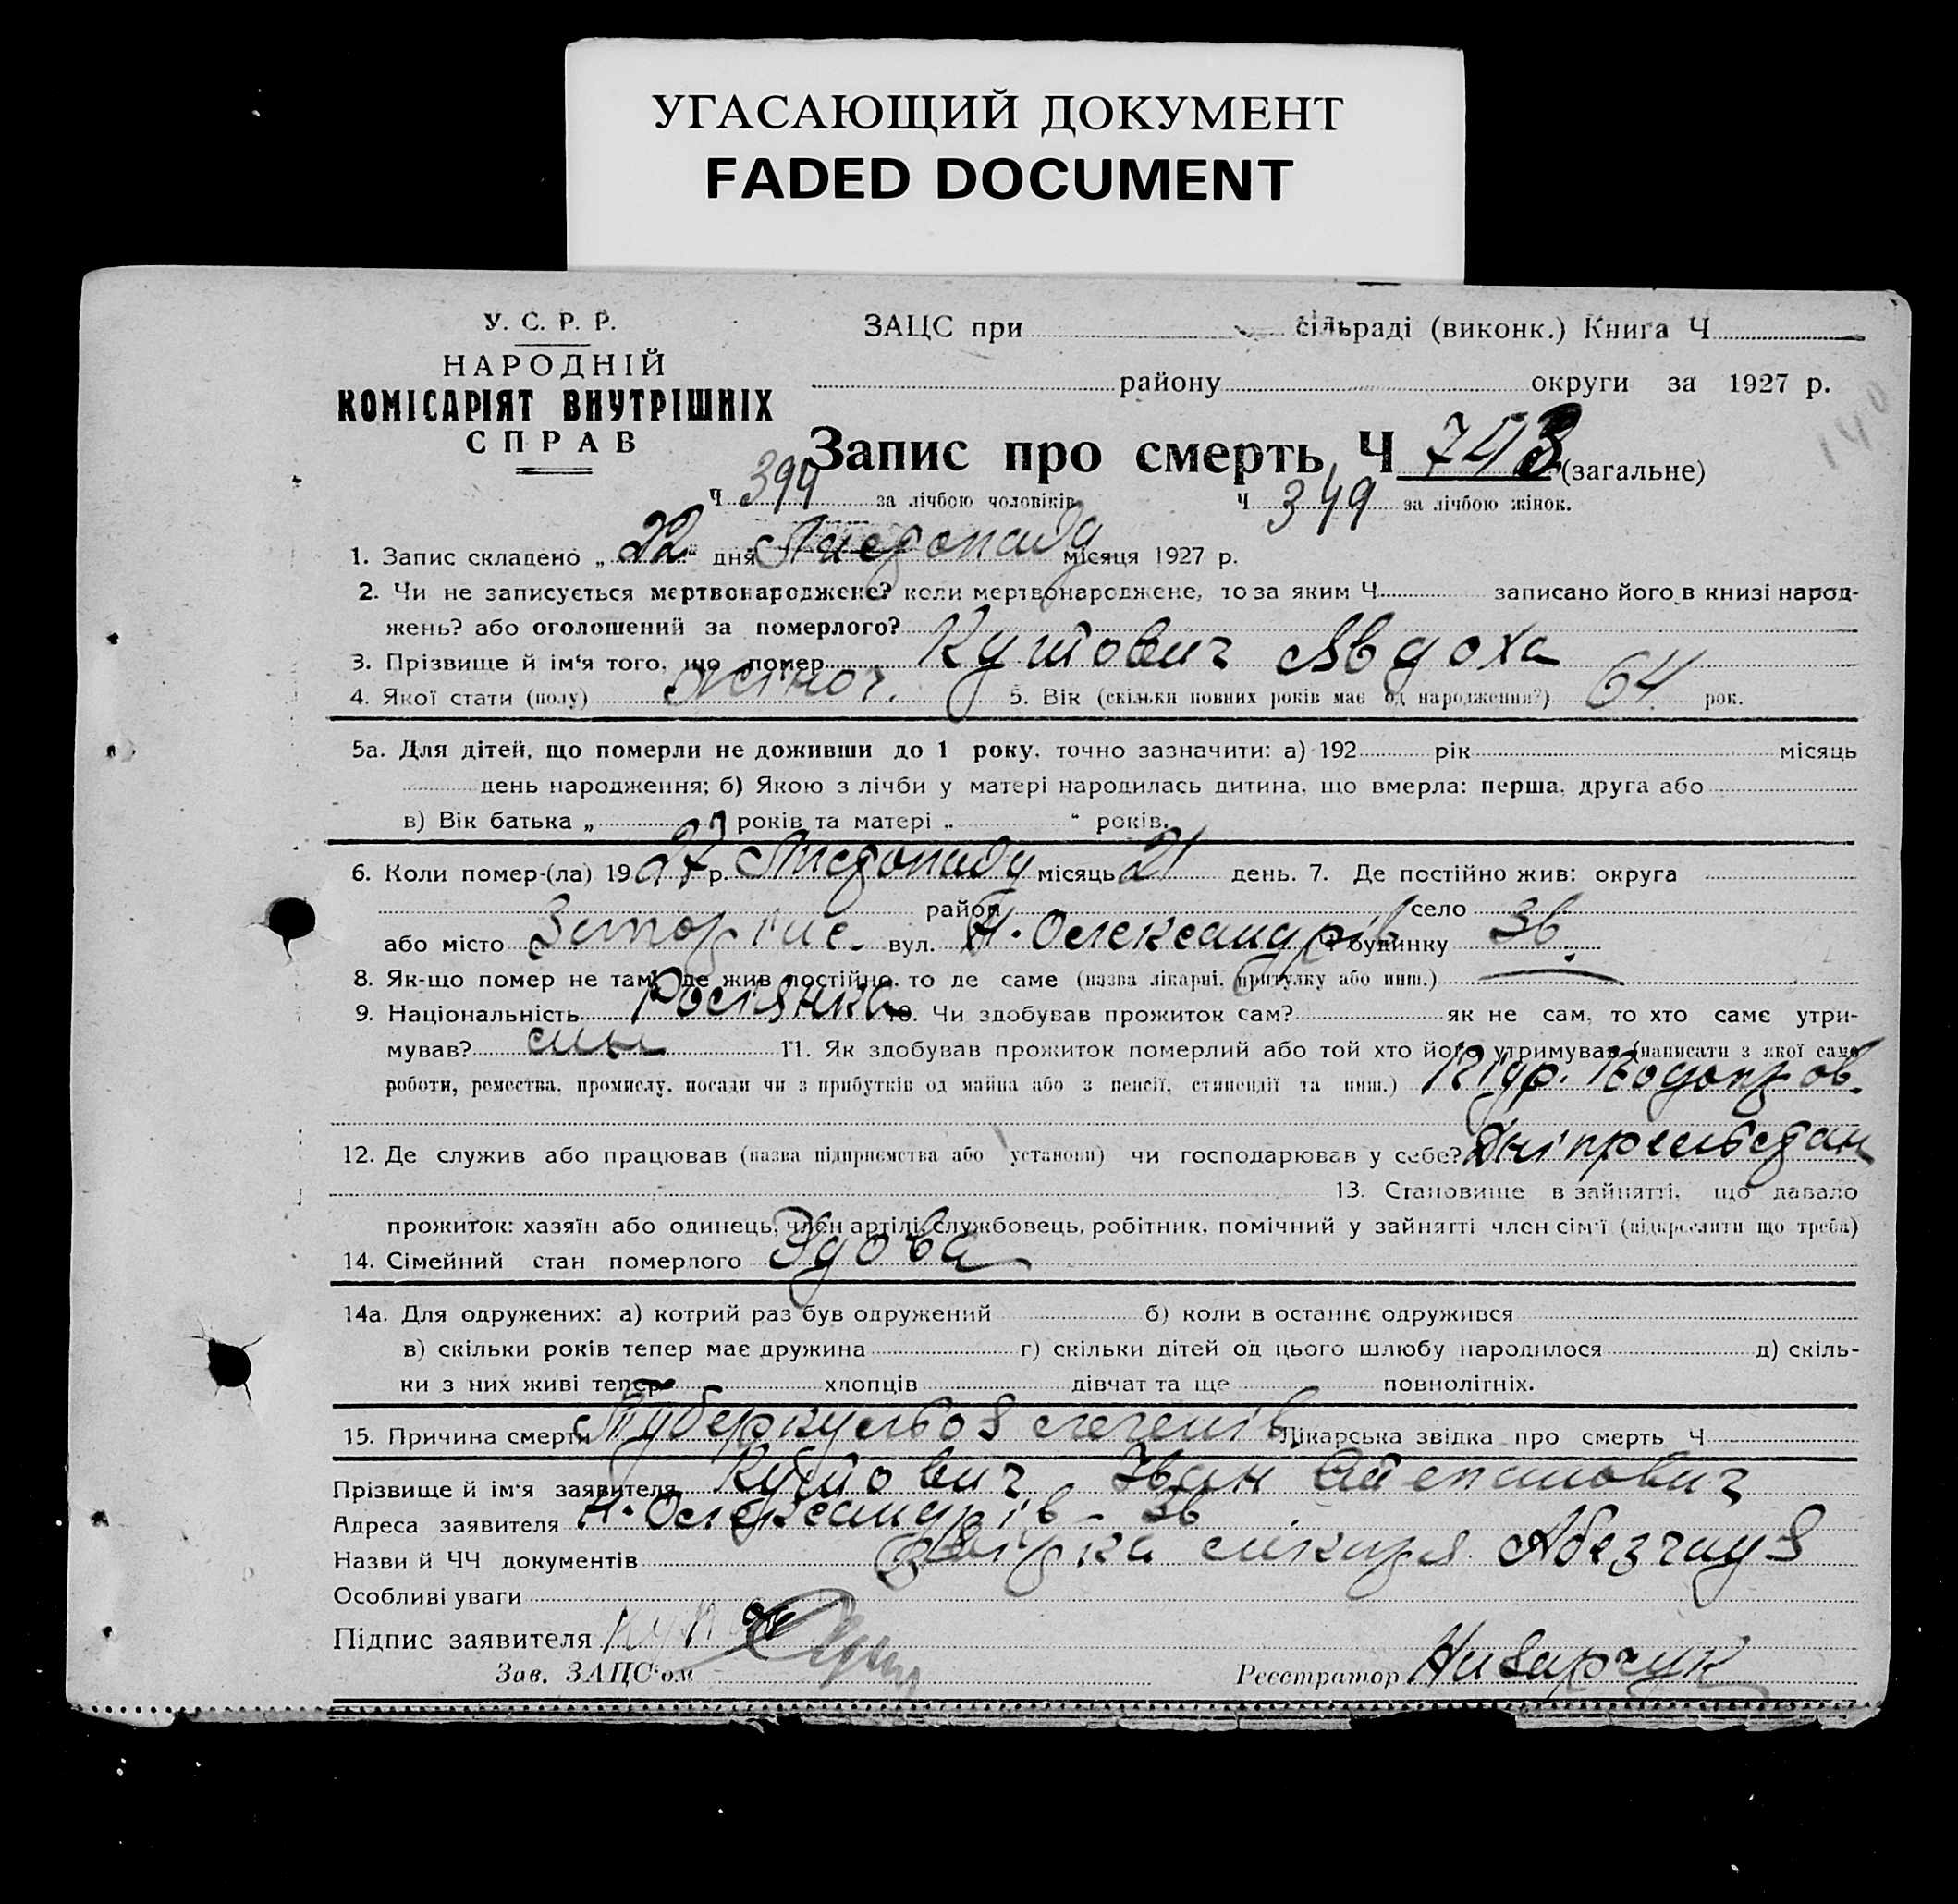 УГАСАЮЩИЙ ДОКУМЕНТ
FADED DOCUMENT
У. С. Р. Р.
НАРОДНІЙ
КОМІСАРІЯТ ВНУТРІШНІХ
СПРАВ
ЗАЦС при сільраді (виконк.) Книга Ч
району округи за 1927 р.
140
Запис про смерть Ч 743 (загальне)
Ч 394 за лічбою чоловіків Ч 349 за лічбою жінок.
1. Запис складено „22" дня Листопаду місяця 1927 р.
2. Чи не записується мертвонароджене? коли мертвонароджене, то за яким Ч записано його в книзі народ-
жень? або оголошений за померлого?
3. Прізвище й ім'я того, що помер Кутович Явдоха
4. Якої стати (полу) жіноч. 5. Вік (скільки повних років має од народження?) 64 рок.
5а. Для дітей, що померли не доживши до 1 року, точно зазначити: а) 192 рік місяць
день народження; б) Якою з лічби у матері народилась дитина, що вмерла: перша, друга або
в) Вік батька „ " років та матері „ " років.
6. Коли помер-(ла) 1927 р. Листопаду місяць 21 день. 7. Де постійно жив: округа
район село
або місто вул. Н. Олександрів Ч будинку 36
8. Як-що помер не там, де жив постійно, то де саме (назва лікарні, притулку або инш.) —
9. Національність Росіянка 10. Чи здобував прожиток сам? як не сам, то хто саме утри-
мував? сын 11. Як здобував прожиток померлий або той хто його утримував (написати з якої саме
роботи, ремества, промислу, посади чи з прибутків од майна або з пенсії, стипендії та инш.)
12. Де служив або працював (назва підприємства або установи) чи господарював у себе?
13. Становище в зайнятті, що давало
прожиток: хазяїн або одинець, член артілі, службовець, робітник, помічний у зайнятті член сім'ї (підкреслити що треба)
14. Сімейний стан померлого Вдова
14а. Для одружених: а) котрий раз був одружений б) коли в останнє одружився
в) скільки років тепер має дружина г) скільки дітей од цього шлюбу народилося д) скіль-
ки з них живі тепер хлопців дівчат та ще повнолітніх.
15. Причина смерти Туберкульоз легенів Лікарська звідка про смерть Ч
Прізвище й ім'я заявителя Кутович Іван Степанович
Адреса заявителя Н. Олександрів - 36
Назви й ЧЧ документів лікаря
Особливі уваги
Підпис заявителя
Зав. ЗАЦС'ом Реєстратор